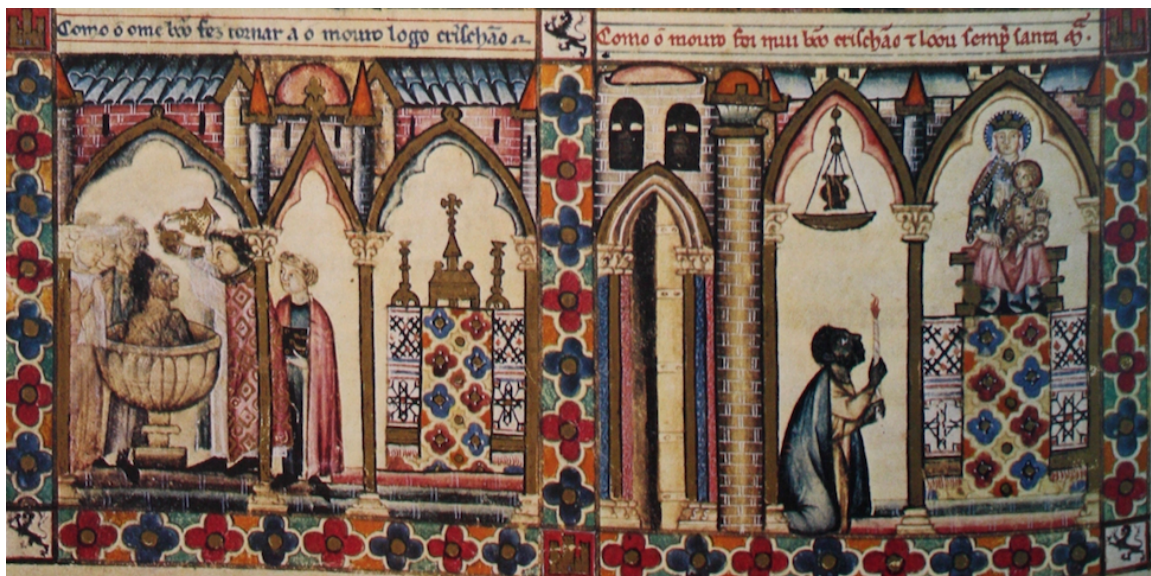 Como o ome bõo fez tornar a o mouro logo crischão
Como o mouro foi mui bõo crischão τ loou semp̃ santa m̃.